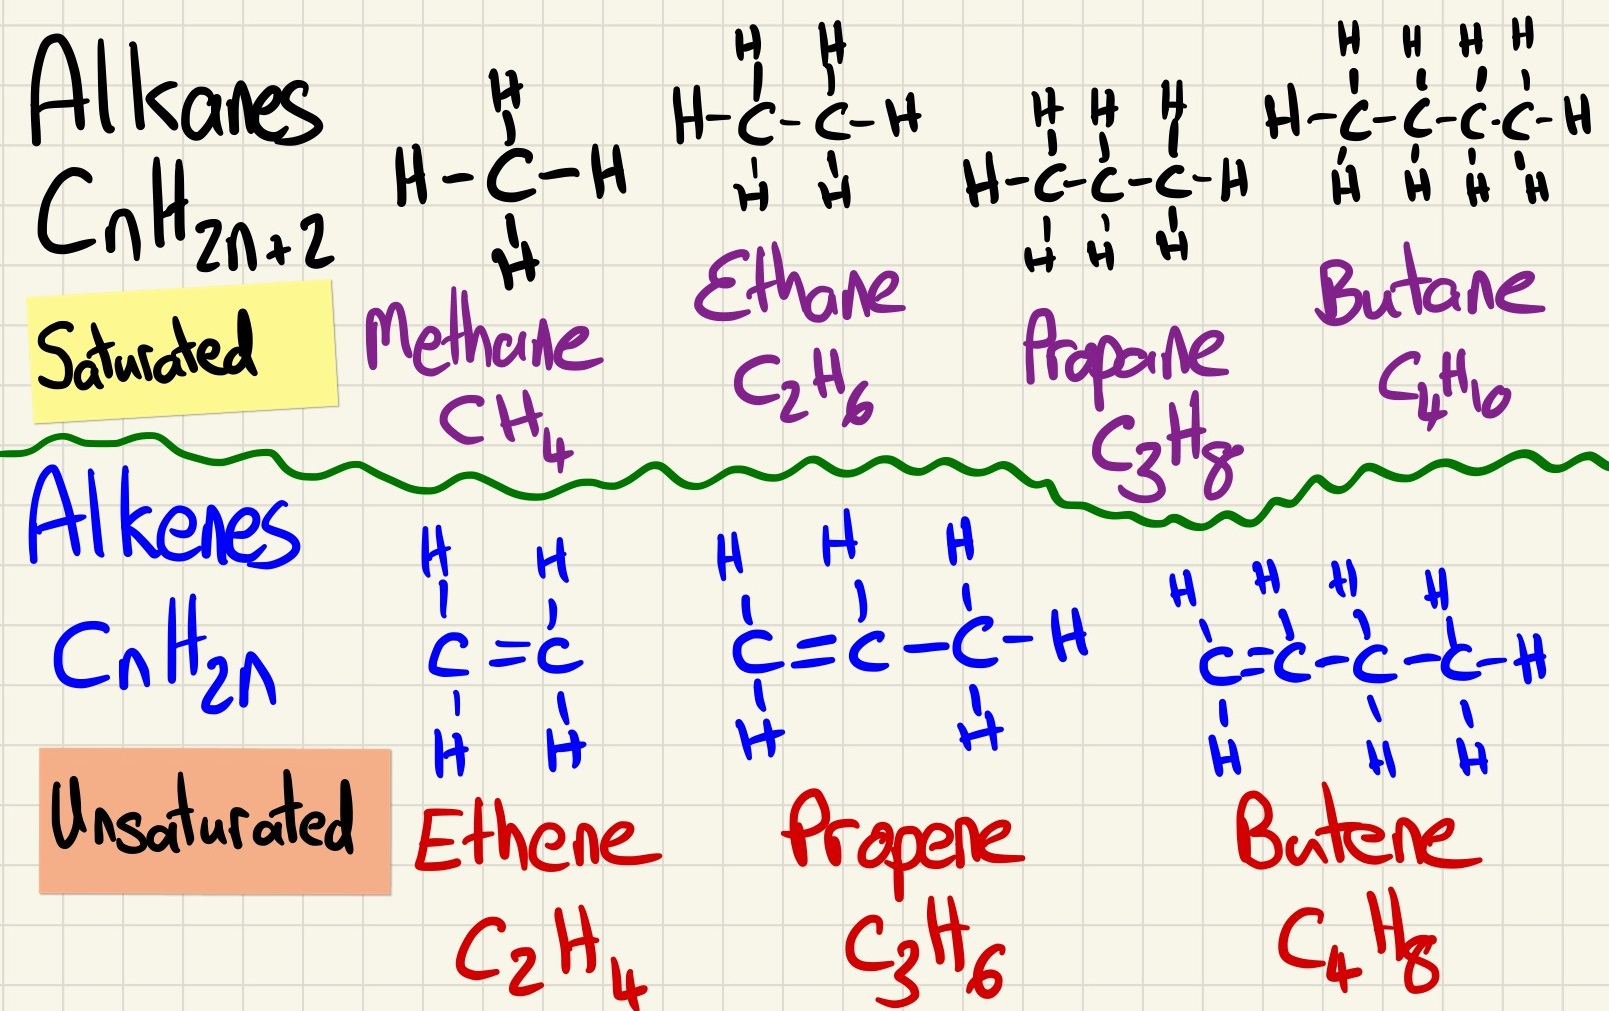 Alkanes
CnH2n+2
Saturated
H
H-C-H
H
Methane
CH4
H H
H-C-C-H
H H
Ethane
C2H6
H H H
H-C-C-C-H
H H H
Propane
C3H8
H H H H
H-C-C-C-C-H
H H H H
Butane
C4H10
Alkenes
CnH2n
Unsaturated
H H
C=C
H H
Ethene
C2H4
H H H
C=C-C-H
H H
Propene
C3H6
H H H H
C=C-C-C-H
H H H
Butene
C4H8